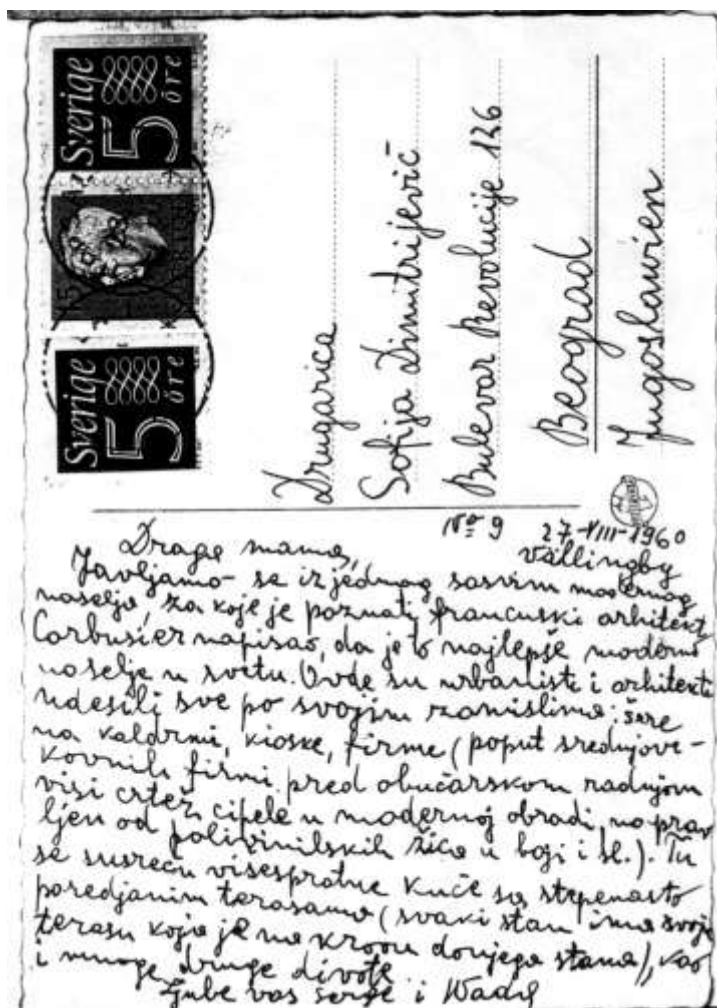 Sverige
5
öre
Sverige
5
öre
Drugarica
Sofija Dimitrijević
Bulevar Revolucije 126
Beograd
Jugoslawien
No 9 27-VIII-1960
Vällingby
Draga mama,
Javljamo se iz jednog sasvim modernog
naselja, za koje je poznati francuski arhitekt
Corbusier napisao, da je to najlepše moderno
naselje u svetu. Ovde su urbanisti i arhitekti
udesili sve po svojim zamislima: šare
na kaldrmi, kioske, firme (poput srednjove-
kovnih firmi pred obućarskom radnjom
visi crtež cipele u modernoj obradi, naprav
ljen od polivinilskih žica u boji i sl.). Tu
se susreću višespratne kuće sa stepenasto
poredjanim terasama (svaki stan ima svoju
terasu koja je na krovu donjega stana), kao
i mnoge druge divote
ljube vas i